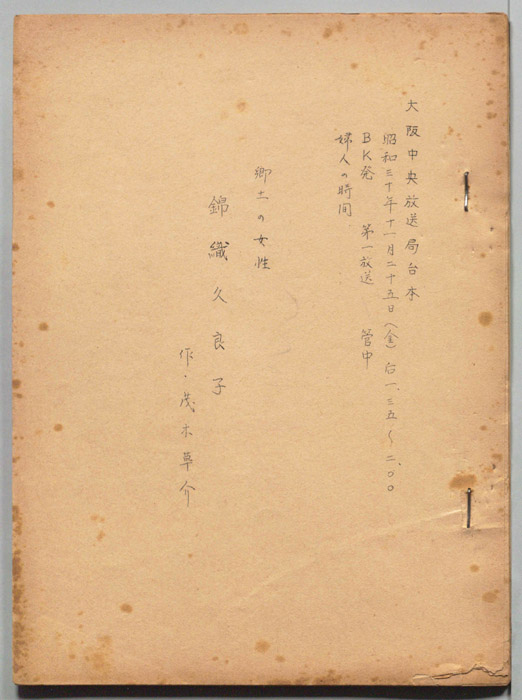 大阪中央放送局台本
昭和三十年十一月二十五日(金)后一、三五〜二、〇〇
BK発 第一放送 管中
婦人の時間
郷土の女性
錦織久良子
作・茂木草介